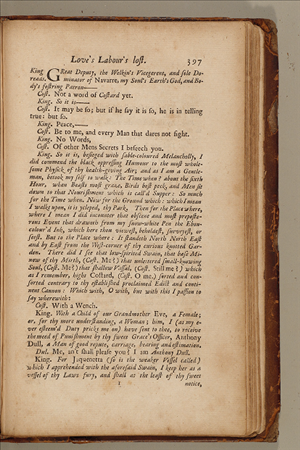 Love's Labour's lost. 397
King reads. GReat Deputy, the Welkin's Vicegerent, and sole Do-
minator of Navarre, my Soul's Earth's God, and Bo-
dy's fostring Patron——
Cost. Not a word of Costard yet.
King. So it is——
Cost. It may be so; but if he say it is so, he is in telling
true: but so.
King. Peace,——
Cost. Be to me, and every Man that dares not fight.
King. No Words,
Cost. Of other Mens Secrets I beseech you.
King. So it is, besieged with sable-coloured Melancholly, I
did commend the black oppressing Humour to the most whole-
some Physick of thy health-giving Air; and as I am a Gentle-
man, betook my self to walk: The Time when? about the sixth
Hour, when Beasts most graze, Birds best peck, and Men sit
down to that Nourishment which is call'd Supper: So much
for the Time when. Now for the Ground which: which I mean
I walkt upon, it is ycleped, thy Park. Then for the Place where,
where I mean I did encounter that obscene and most preposte-
rous Event that draweth from my snow-white Pen the Ebon-
colour'd Ink, which here thou viewest, beholdest, surveyest, or
seest. But to the Place where: It standeth North North East
and by East from the West-corner of thy curious knotted Gar-
den. There did I see that low-spirited Swain, that base Min-
now of thy Mirth, (Cost. Me?) that unlettered small-knowing
Soul, (Cost. Me?) that shallow Vassal, (Cost. Still me?) which
as I remember, hight Costard, (Cost. O me,) sorted and con-
sorted contrary to thy established proclaimed Edict and conti-
nent Cannon: Which with, O with, but with this I passion to
say wherewith:
Cost. With a Wench.
King. With a Child of our Grandmother Eve, a Female;
or, for thy more understanding, a Woman; him, I (as my e-
ver esteem'd Duty pricks me on) have sent to thee, to receive
the meed of Punishment by thy sweet Grace's Officer, Anthony
Dull, a Man of good repute, carriage, bearing and estimation.
Dul. Me, an't shall please you? I am Anthony Dull.
King. For Jaquenetta (so is the weaker Vessel called)
which I apprehended with the aforesaid Swain, I keep her as a
vessel of thy Laws fury, and shall at the least of thy sweet
notice,